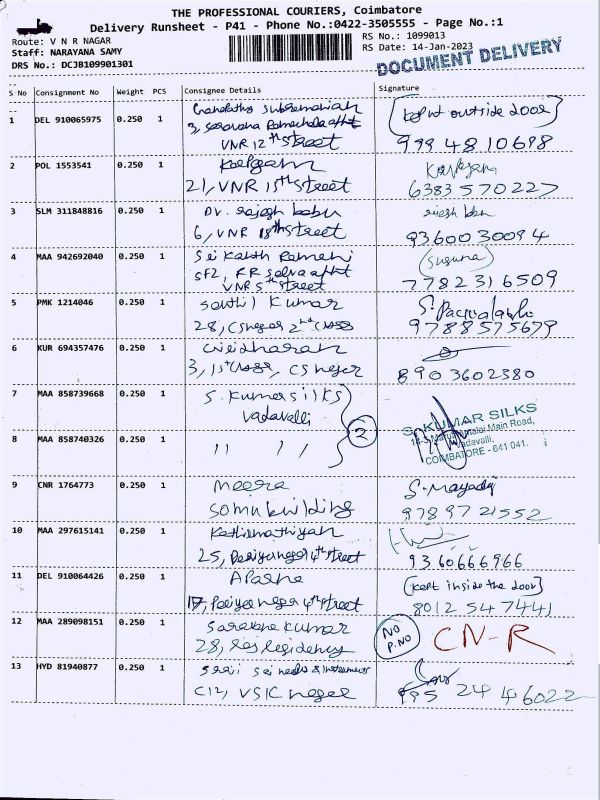 THE PROFESSIONAL COURIERS, Coimbatore
Delivery Runsheet - P41 - Phone No.:0422-3505555 - Page No.:1
Route: V N R NAGAR
Staff: NARAYANA SAMY
DRS No.: DCJB109901301
RS No.: 1099013
RS Date: 14-Jan-2023
DOCUMENT DELIVERY
S No Consignment No Weight PCS Consignee Details Signature
1 DEL 910065975 0.250 1
(kept outside door)
VNR 12th street 99948 10698
2 POL 1553541 0.250 1
21, VNR 15th street 6383570227
3 SLM 311848816 0.250 1 Dr. rajesh babu
6, VNR 18th street 93600 30094
4 MAA 942692040 0.250 1 Sri (Suguna)
SF2, RR
VNR 5th street 7782316509
5 PMK 1214046 0.250 1 Senthil kumar S.
28, CS nagar 2nd cross 9788575679
6 KUR 694357476 0.250 1 Giridharan
3, 1st cross, CS nagar 8903602380
7 MAA 858739668 0.250 1 S. Kumar silks
Vadavalli
(2)
S. KUMAR SILKS
Main Road,
Vadavalli,
COIMBATORE - 641 041.
8 MAA 858740326 0.250 1 11 11
9 CNR 1764773 0.250 1 Meera S.
Somu building 9789721552
10 MAA 297615141 0.250 1 Kathirmathiyan
25, Periyanagar 4th street 9360666966
11 DEL 910064426 0.250 1 Aparna (kept inside the door)
17, Periyanagar 4th street 8012547441
12 MAA 289098151 0.250 1 Saravana kumar NO P.NO CN-R
28, Residency
13 HYD 81940877 0.250 1 Sai
C12, VSK nagar 24 46022